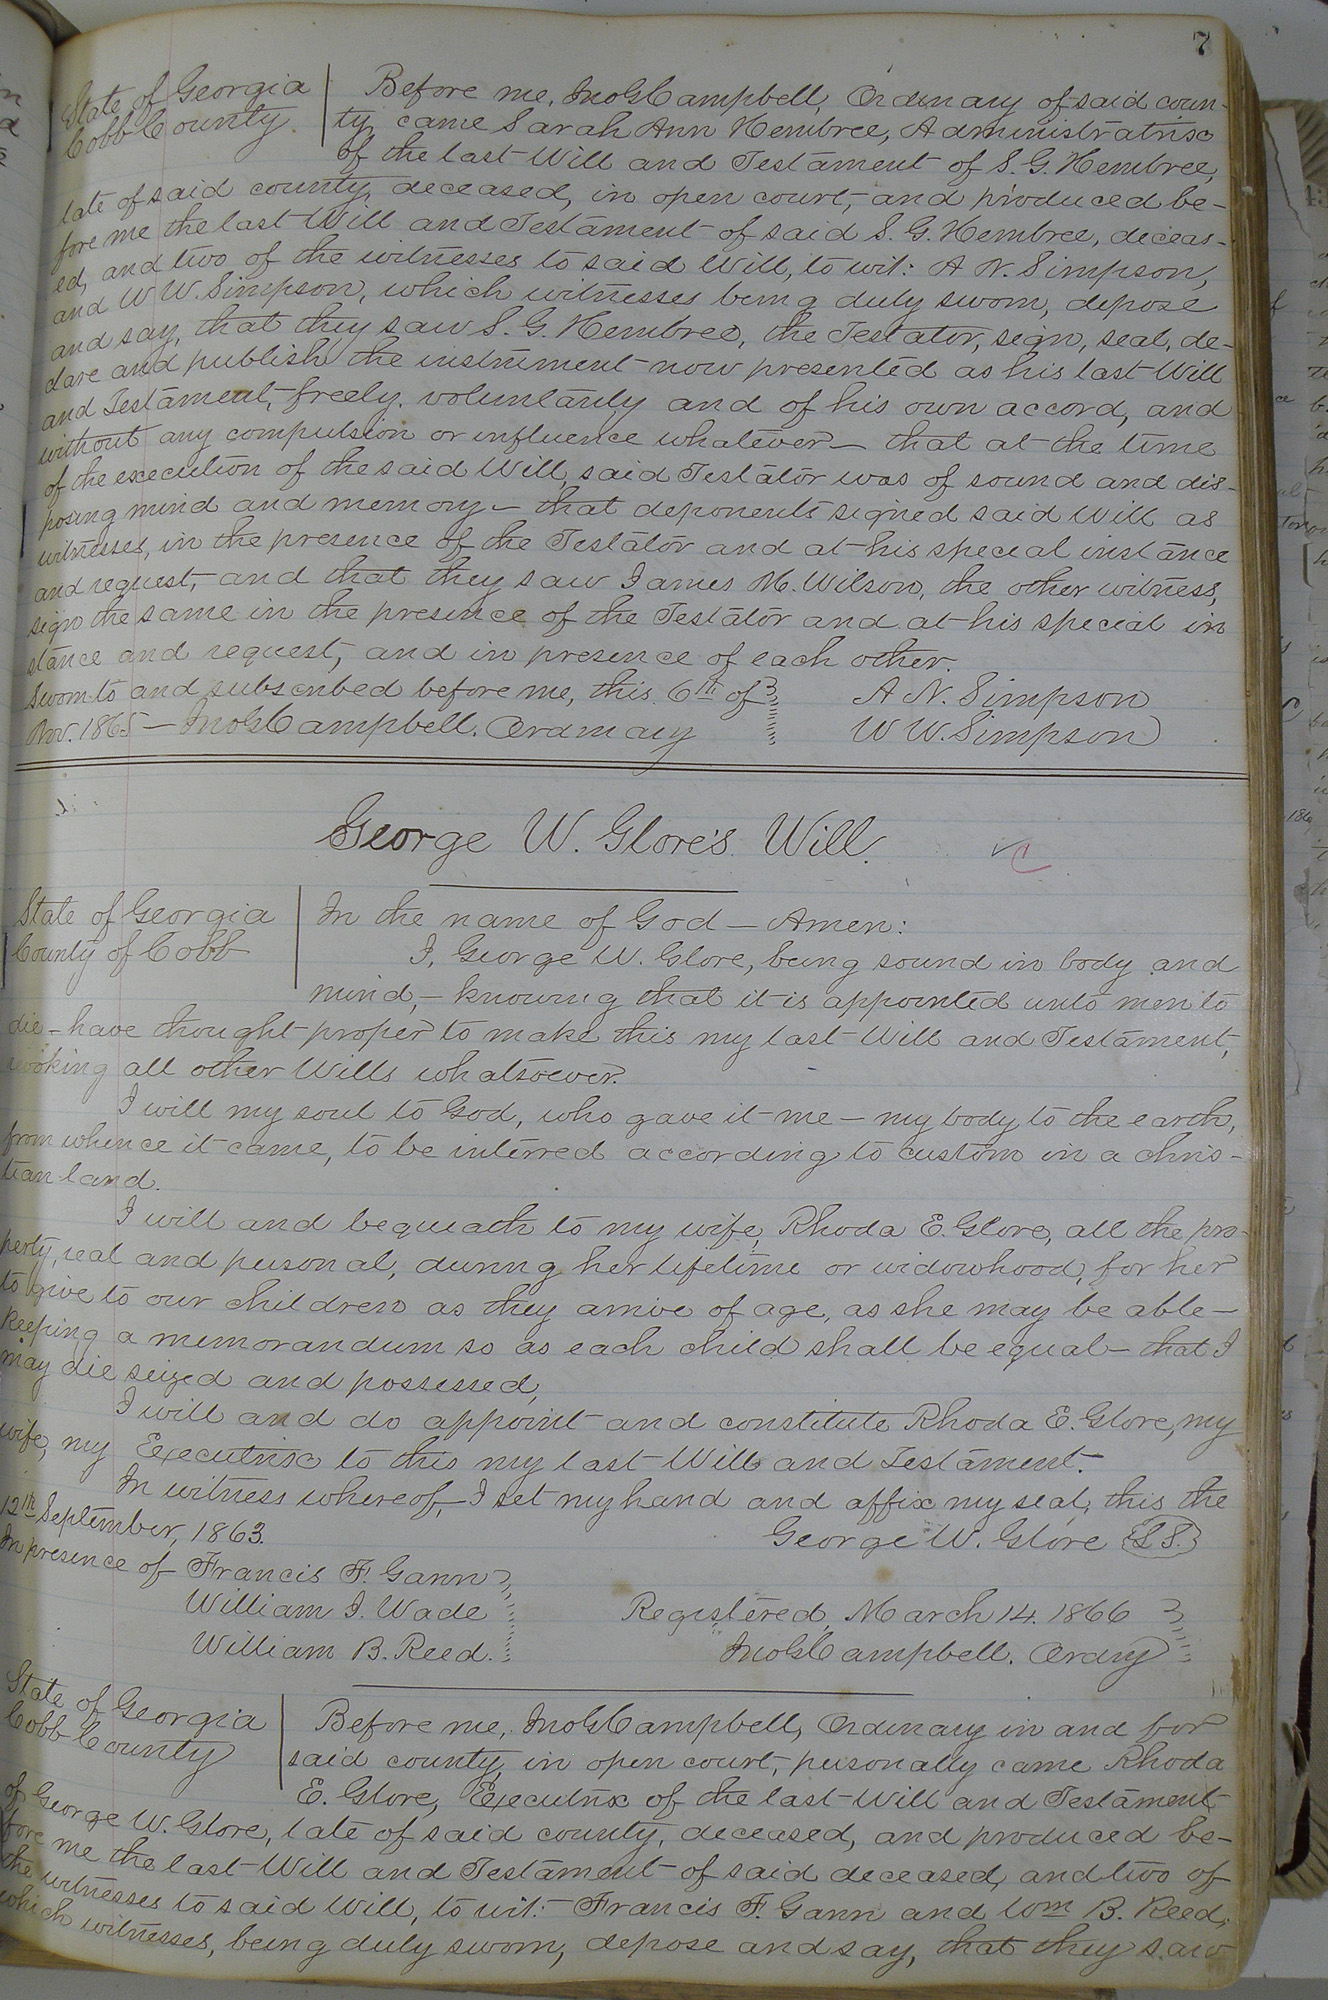 7
State of Georgia | Before me, Jno G Campbell, Ordinary of said coun-
Cobb County. | ty, came Sarah Ann Hembree, Administratrix
of the last Will and Testament of S. G. Hembree,
late of said county, deceased, in open court, and produced be-
fore me the last Will and Testament of said S. G. Hembree, deceas-
ed, and two of the witnesses to said Will, to wit: A N. Simpson,
and W W. Simpson, which witnesses being duly sworn, depose
and say, that they saw S. G. Hembree, the Testator, sign, seal, de-
clare and publish the instrument now presented as his last Will
and Testament, freely, voluntarily and of his own accord, and
without any compulsion or influence whatever — that at the time
of the execution of the said Will, said Testator was of sound and dis-
posing mind and memory — that deponents signed said Will as
witnesses, in the presence of the Testator and at his special instance
and request, and that they saw James M. Wilson, the other witness,
sign the same in the presence of the Testator and at his special in
stance and request, and in presence of each other.
Sworn to and subscribed before me, this 6th of } A N. Simpson
Nov. 1865 — Jno G Campbell. Ordinary } W W. Simpson
George W. Glore's Will.
State of Georgia | In the name of God — Amen:
County of Cobb | I, George W. Glore, being sound in body and
mind, — knowing that it is appointed unto men to
die — have thought proper to make this my last Will and Testament,
revoking all other Wills whatsoever.
I will my soul to God, who gave it me — my body to the earth,
from whence it came, to be interred according to custom in a chris-
tian land.
I will and bequeath to my wife, Rhoda E. Glore, all the pro-
perty, real and personal, during her lifetime or widowhood, for her
to give to our children as they arrive of age, as she may be able —
keeping a memorandum so as each child shall be equal — that I
may die seized and possessed,
I will and do appoint and constitute Rhoda E. Glore, my
wife, my Executrix to this my last Will and Testament.
In witness whereof, I set my hand and affix my seal, this the
12th September, 1863. George W. Glore {L S.}
In presence of Francis F. Gann }
William J. Wade Registered, March 14. 1866 }
William B. Reed. Jno G Campbell. Ordny
State of Georgia | Before me, Jno G Campbell, Ordinary in and for
Cobb County | said county, in open court, personally came Rhoda
E. Glore, Executrix of the last Will and Testament
of George W. Glore, late of said county, deceased, and produced be-
fore me the last Will and Testament of said deceased, and two of
the witnesses to said Will, to wit: Francis F. Gann and Wm B. Reed,
which witnesses, being duly sworn, depose and say, that they saw